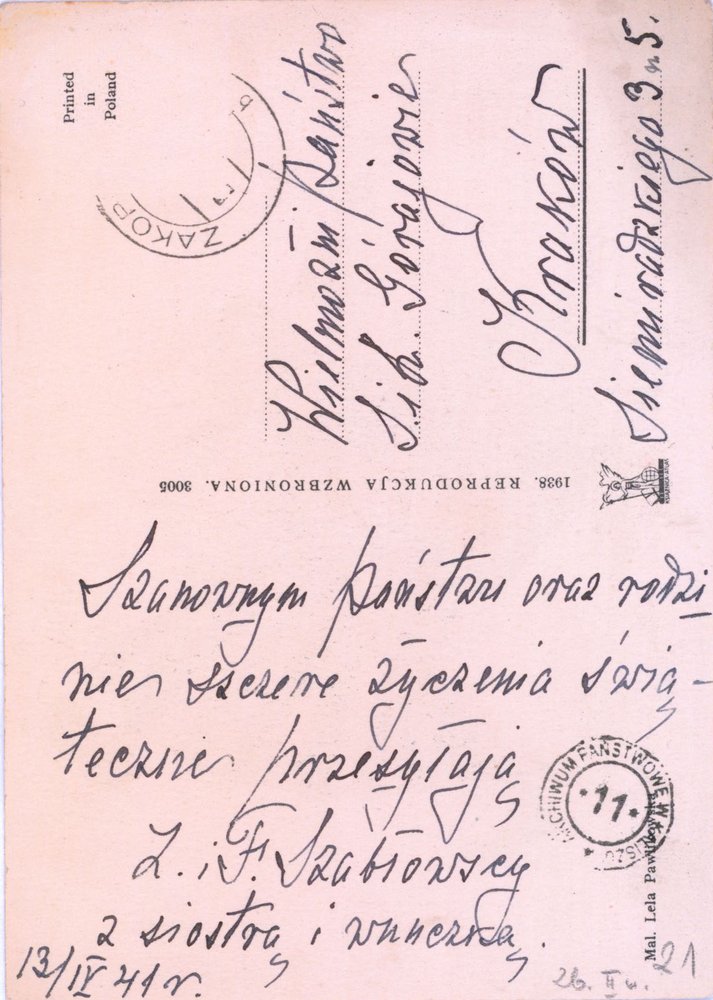 Printed
in
Poland
ZAKOP
Wielmożni Państwo
S.K. Górajowie
Kraków
Siemiradzkiego 3 n 5.
1938. REPRODUKCJA WZBRONIONA. 3005
Szanownym Państwu oraz rodzi
nie szczere życzenia świą-
teczne przesyłają
L. i F. Szabłowscy
z siostrą i wnuczką.
13/IV 41 r.
ARCHIWUM PAŃSTWOWE W KALISZU
11
Mal. Lela Pawlikowska
21